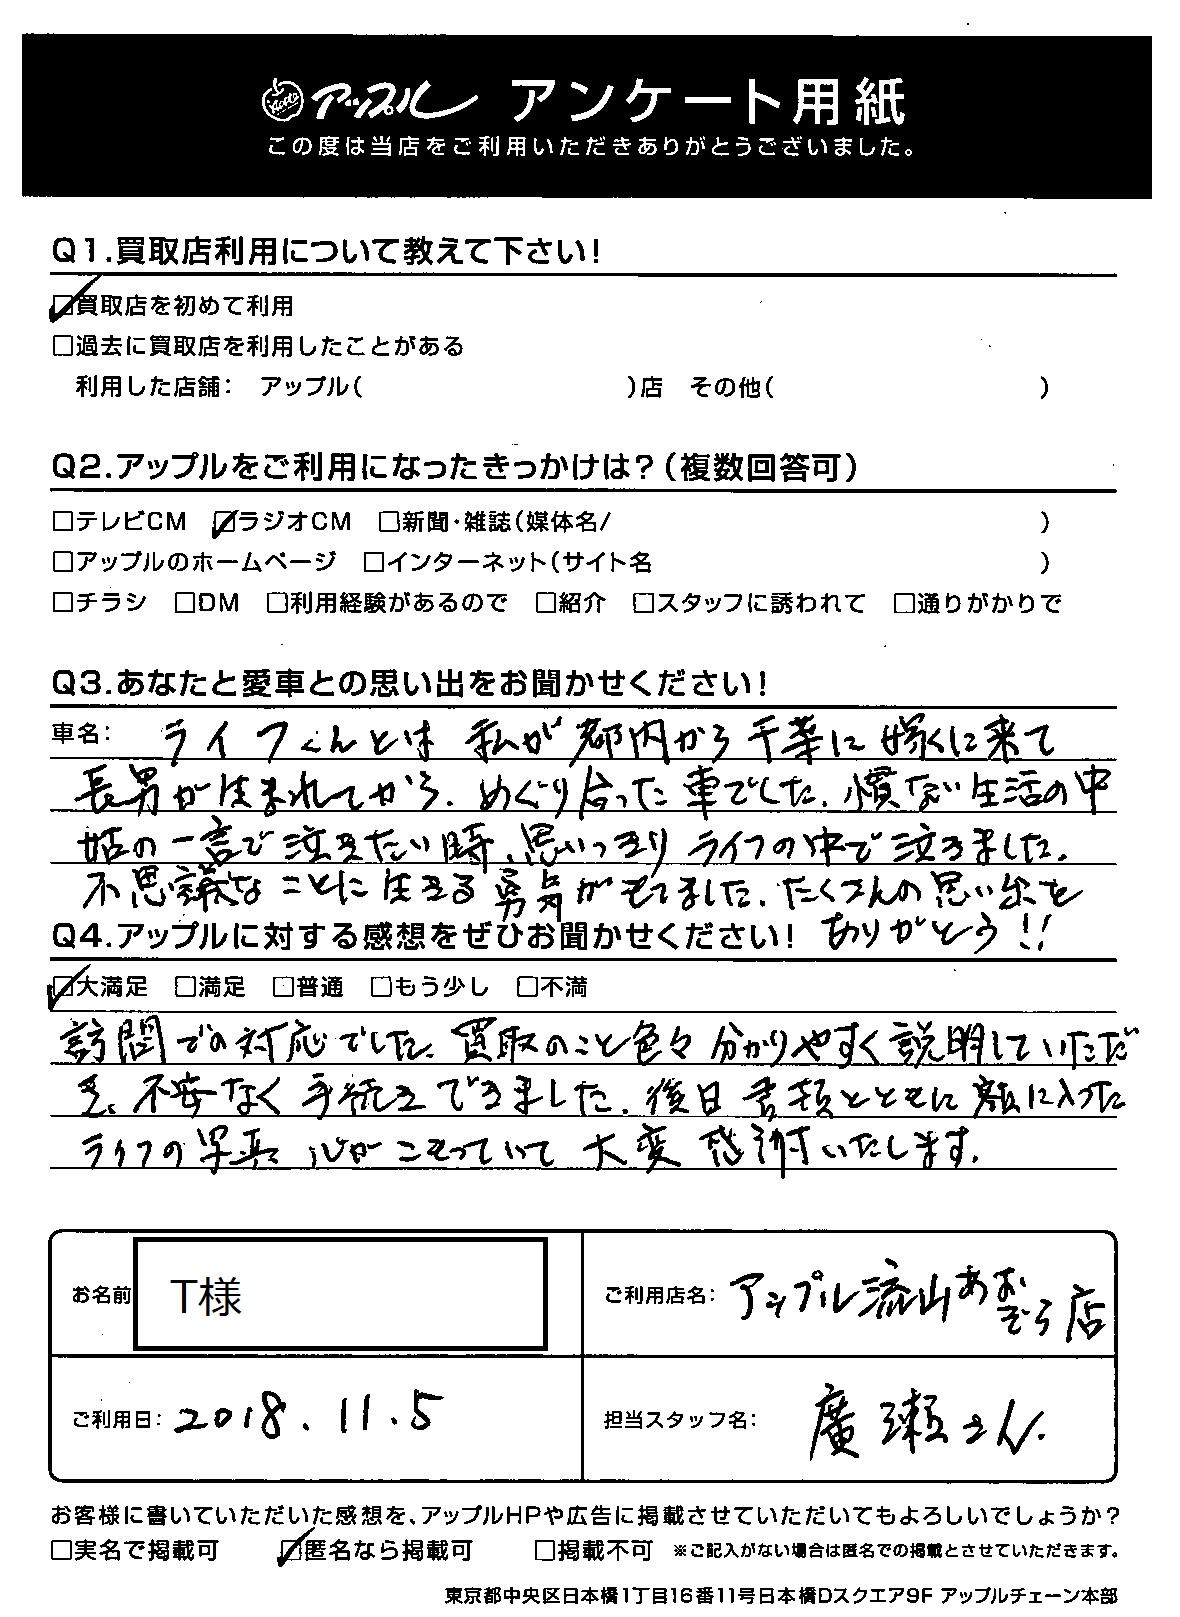 Apple アップル アンケート用紙
この度は当店をご利用いただきありがとうございました。
Q1.買取店利用について教えて下さい!
☑買取店を初めて利用
□過去に買取店を利用したことがある
利用した店舗: アップル( )店 その他( )
Q2.アップルをご利用になったきっかけは?(複数回答可)
□テレビCM ☑ラジオCM □新聞・雑誌(媒体名/ )
□アップルのホームページ □インターネット(サイト名 )
□チラシ □DM □利用経験があるので □紹介 □スタッフに誘われて □通りがかりで
Q3.あなたと愛車との思い出をお聞かせください!
車名: ライフくんとは 私が都内から千葉に嫁くに来て
長男が生まれてから、めぐり合った車でした。慣ない生活の中
姑の一言で泣きたい時、思いっきりライフの中で泣きました。
不思議なことに生きる勇気がもてました。たくさんの思い出を
ありがとう!!
Q4.アップルに対する感想をぜひお聞かせください!
☑大満足 □満足 □普通 □もう少し □不満
訪問での対応でした。買取のこと色々分かりやすく説明していただ
き、不安なく手続きできました。後日書類とともに額に入った
ライフの写真 心がこもっていて大変感謝いたします。
お名前 T様
ご利用店名: アップル流山あおぞら店
ご利用日: 2018.11.5
担当スタッフ名: 廣瀬さん.
お客様に書いていただいた感想を、アップルHPや広告に掲載させていただいてもよろしいでしょうか?
□実名で掲載可 ☑匿名なら掲載可 □掲載不可 ※ご記入がない場合は匿名での掲載とさせていただきます。
東京都中央区日本橋1丁目16番11号日本橋Dスクエア9F アップルチェーン本部